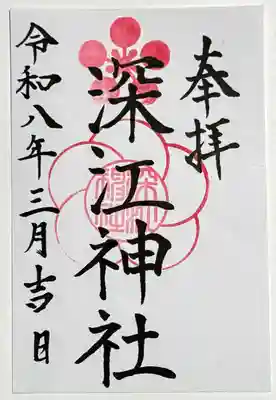 奉拝
深江神社
令和八年三月吉日